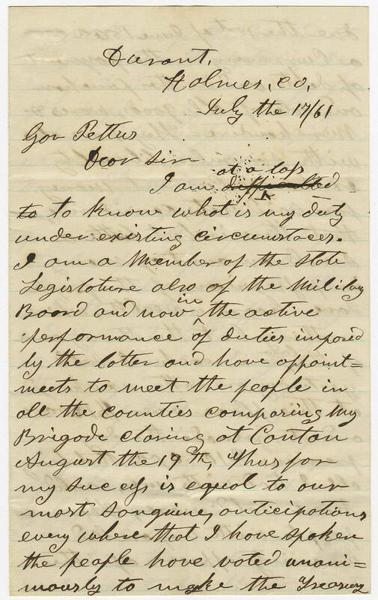 Durant,
Holmes, co,
July the 17/61
Gov Pettus
Dear Sir
at a loss
I am difficulted
to to know what is my duty
under existing circumstaces.
I am a Member of the State
Legislature also of the Military
Board and now in the active
performance of duties imposed
by the latter and have appoint=
meets to meet the people in
all the counties comparing my
Brigade closing at Canton
August the 19th, Thus far
my success is equal to our
most sanguine, anticipations
every where that I have spoken
the people have voted unani=
mously to make the Treasury